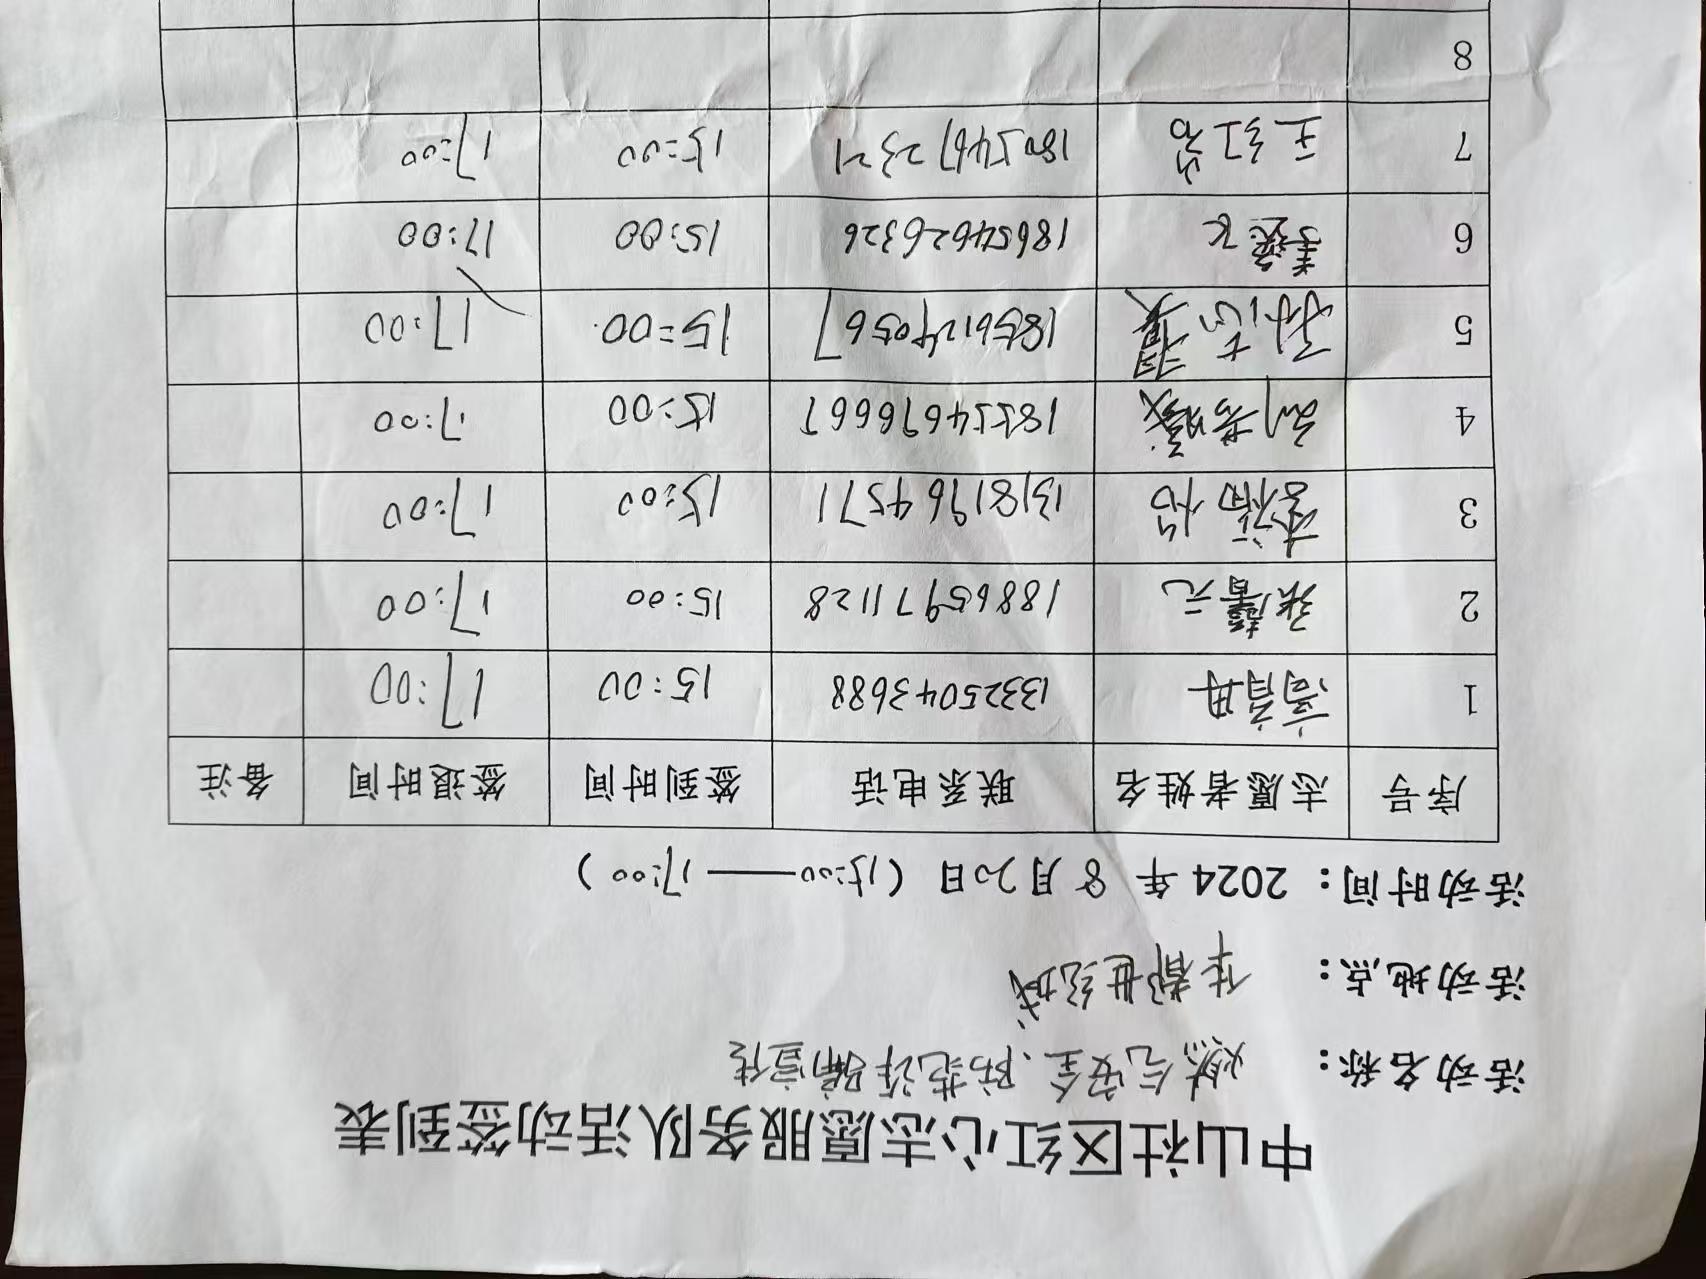 中山社区红心志愿服务队活动签到表
活动名称: 燃气安全、防范诈骗宣传
活动地点: 华都世纪城
活动时间: 2024 年 8 月 20 日 (15:00——17:00)
序号 志愿者姓名 联系电话 签到时间 签退时间 备注
1 高育冉 13325043688 15:00 17:00
2 张馨元 18865971128 15:00 17:00
3 李福怡 13181964571 15:00 17:00
4 18554696667 15:00 17:00
5 18561240567 15:00 17:00
6 18654626326 15:00 17:00
7 18054672321 15:00 17:00
8